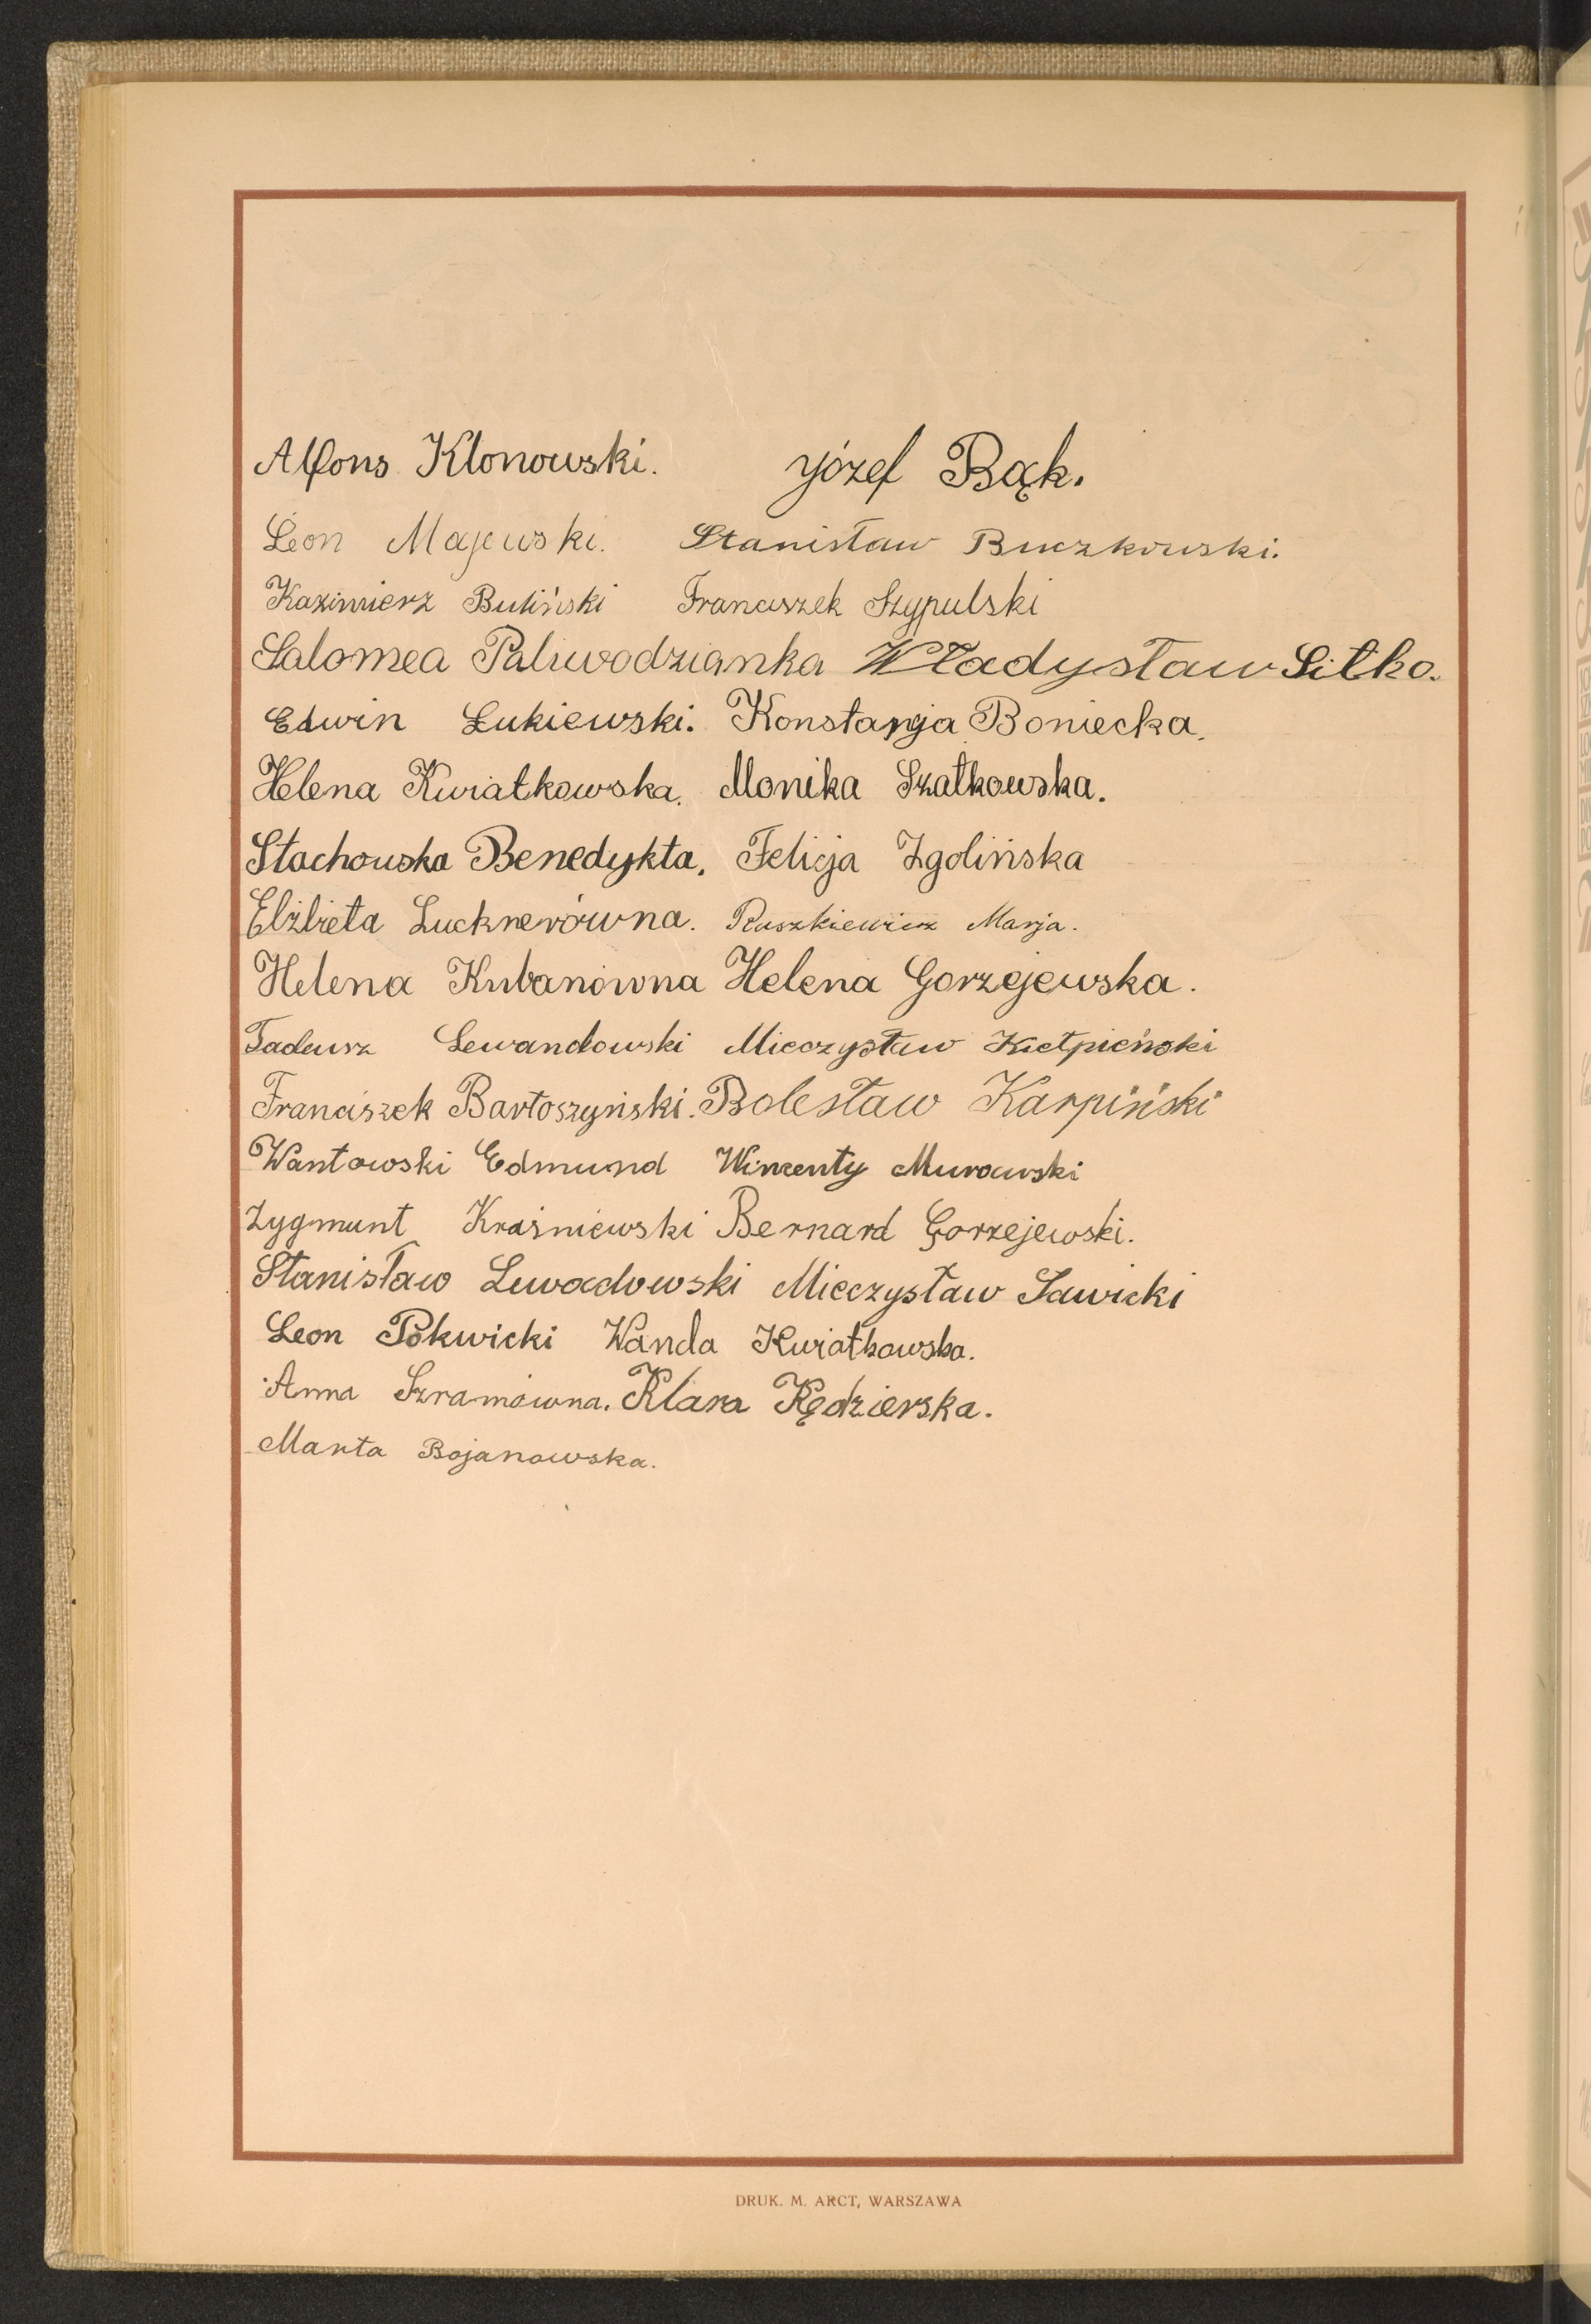 Alfons Klonowski. Józef Bąk.
Leon Majewski. Stanisław Buczkowski.
Kazimierz Buliński Franciszek Szypulski
Salomea Paliwodzianka Władysław Sitko.
Edwin Lukiewski. Konstancja Boniecka.
Helena Kwiatkowska. Monika Szatkowska.
Stachowska Benedykta. Felicja Zgolińska
Elżbieta Lucknerówna. Ruszkiewicz Marja.
Helena Kubanówna Helena Gorzejewska.
Tadeusz Lewandowski Mieczysław Kiełpieński
Franciszek Bartoszyński. Bolesław Karpiński
Wantowski Edmund Wincenty Murawski
Zygmunt Kraśniewski Bernard Gorzejewski.
Stanisław Lewadowski Mieczysław Sawicki
Leon Pokwicki Wanda Kwiatkowska.
Anna Szramówna. Klara Kędzierska.
Marta Bojanowska.
DRUK. M. ARCT, WARSZAWA